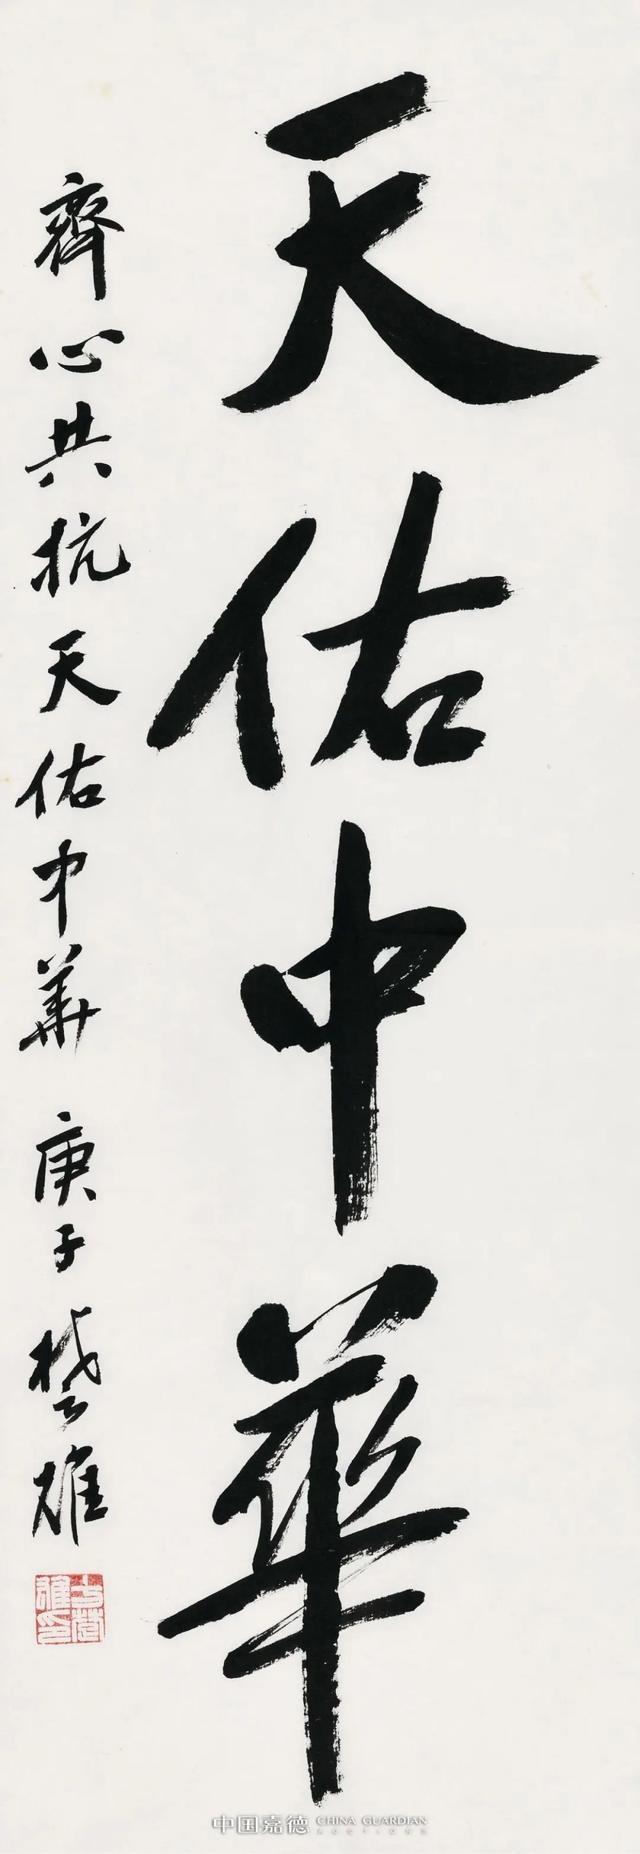 天佑中華
齊心共抗天佑中華 庚子楚雄
方楚雄印
中国嘉德 CHINA GUARDIAN